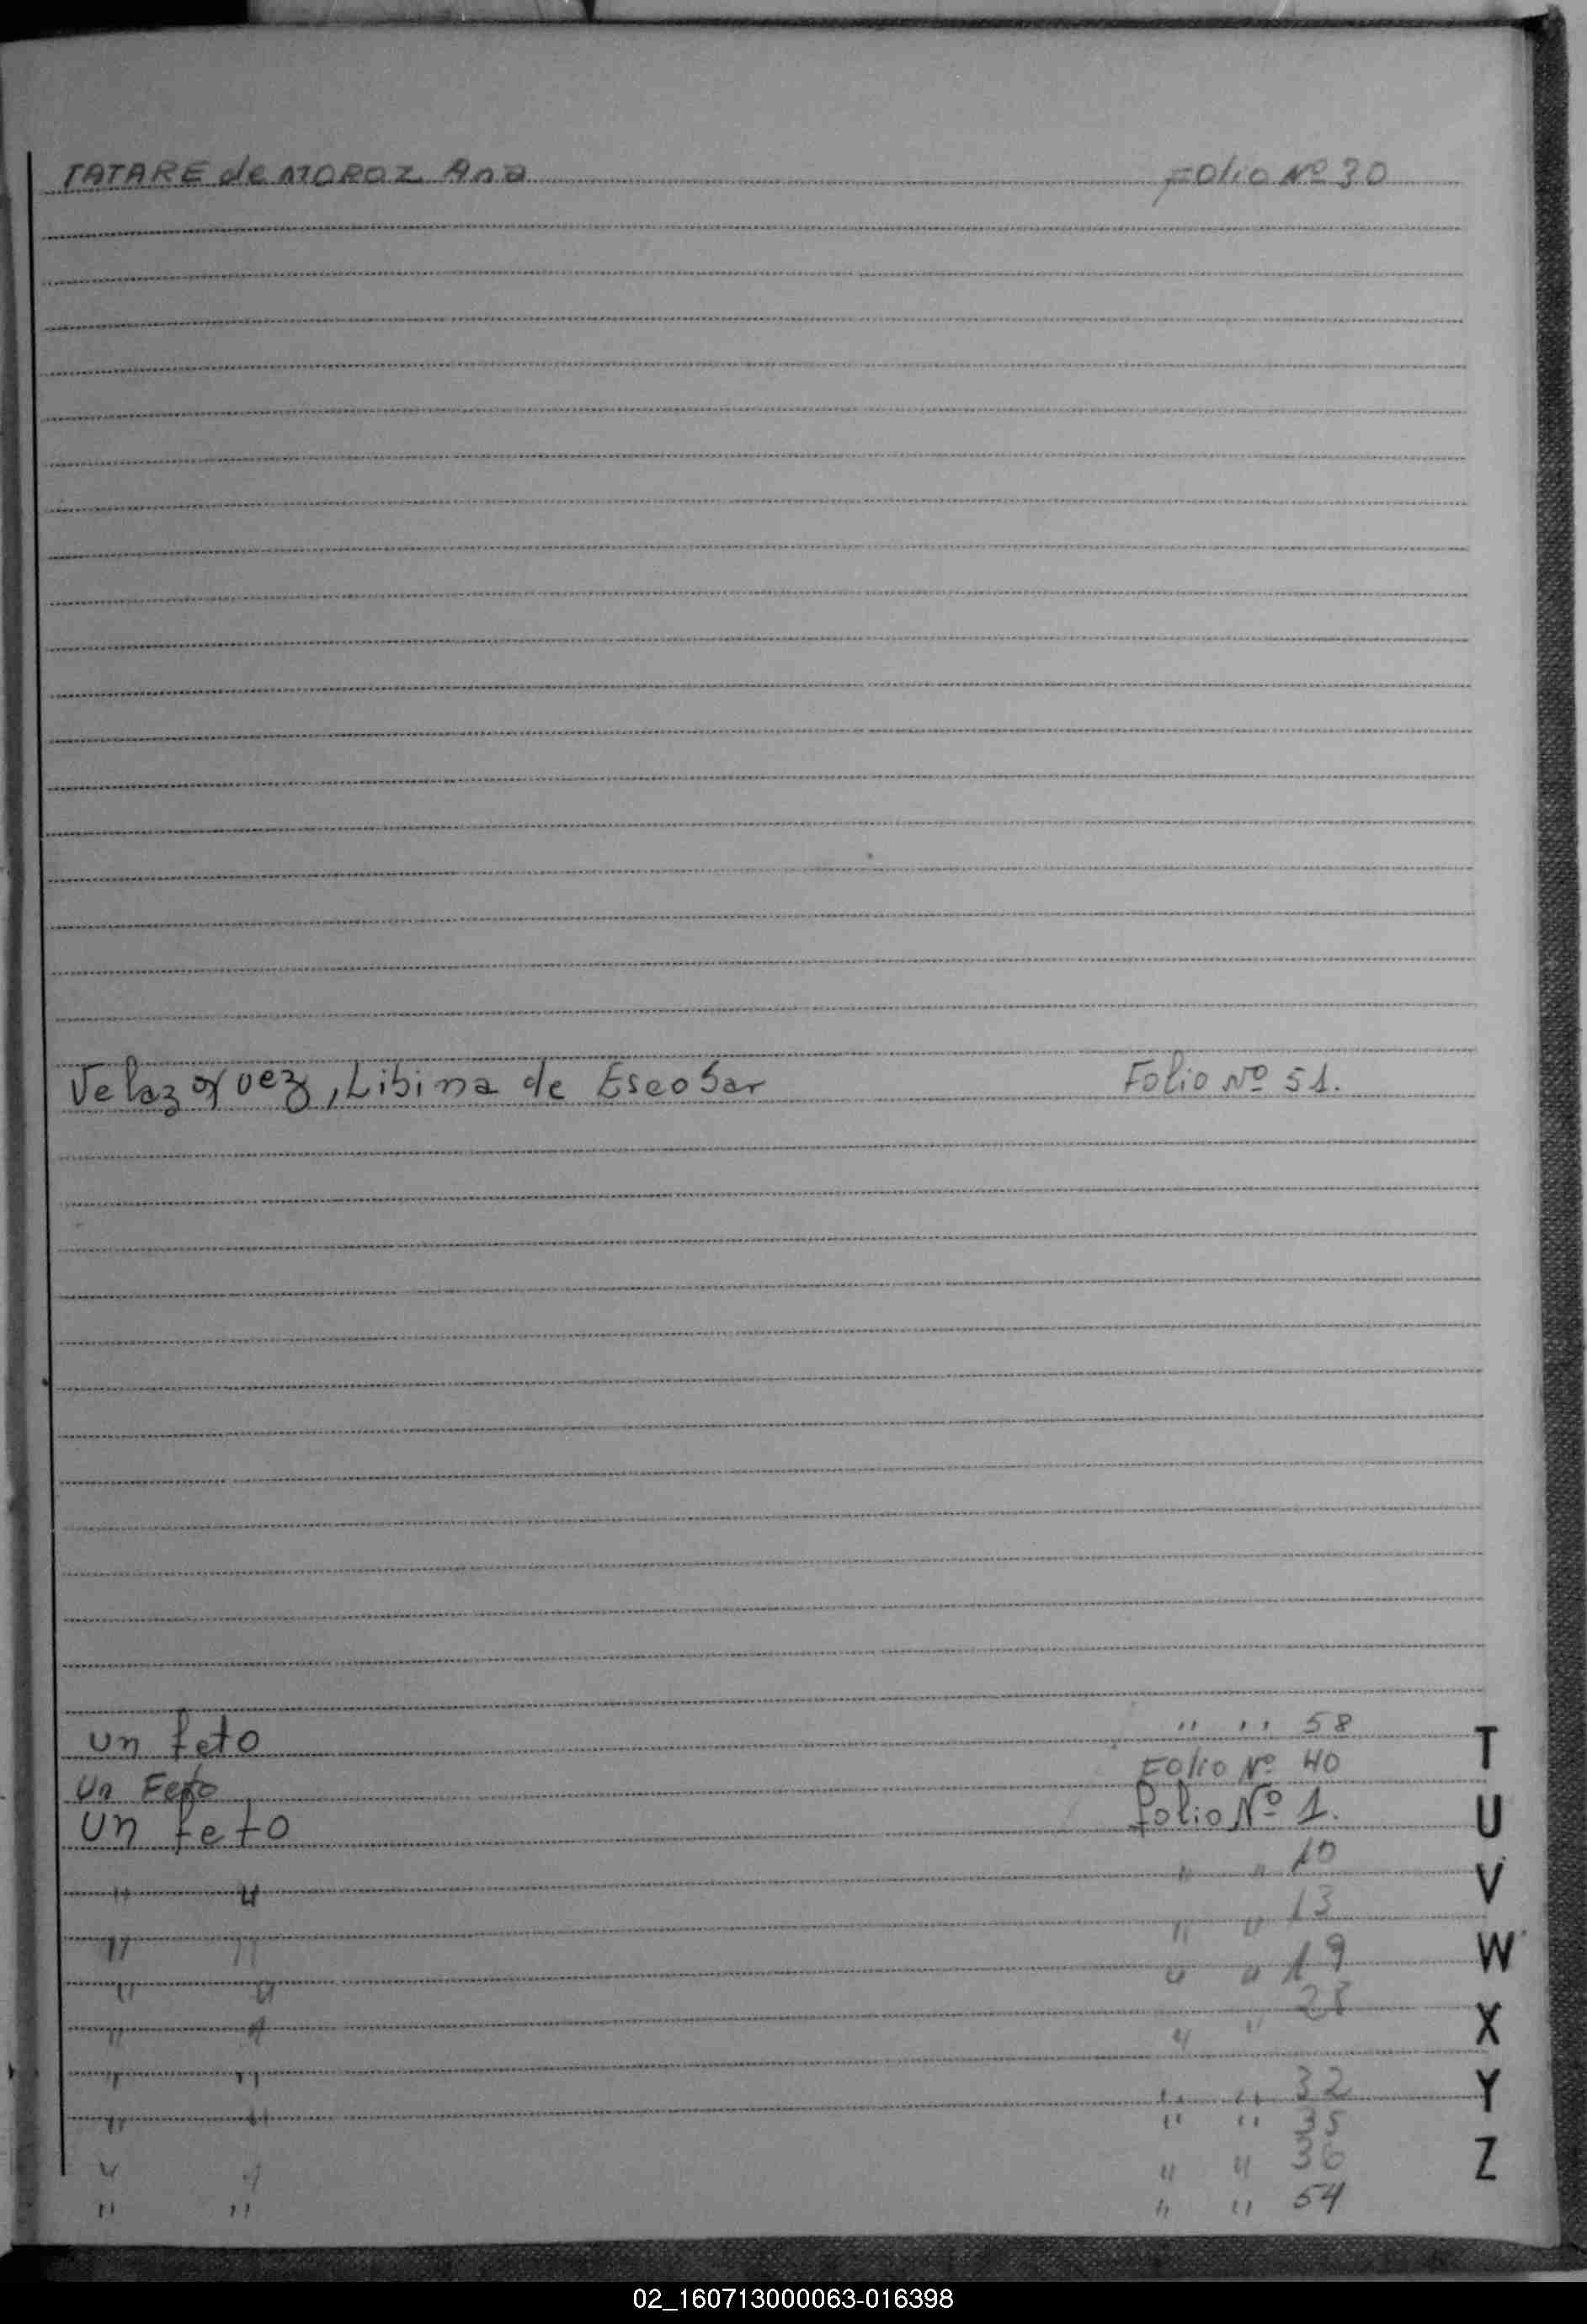 TATARE de MOROZ Ana Folio Nº 30
Velazquez, Libina de Escobar Folio Nº 51.
un feto " " 58
Un Feto Folio Nº 40
Un feto folio Nº 1.
" " " " 10
" " " " 13
" " " " 19
" " " " 28
" " " " 32
" " " " 35
" " " " 36
" " " " 54
T
U
V
W
X
Y
Z
02_160713000063-016398